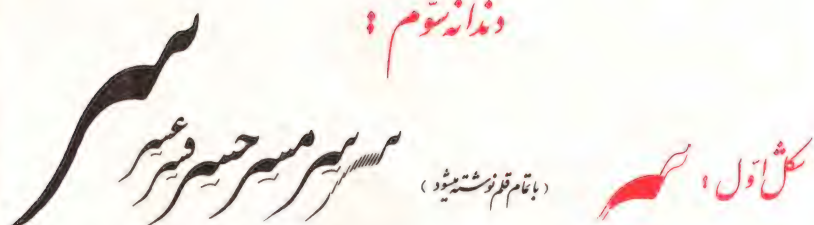 دندانه سوّم :
شکل اوّل : سر (با تمام قلم نوشته میشود) سر سر مسر حسر فسر عسر
سر